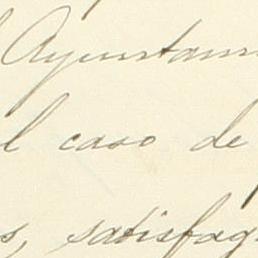 Ayuntam
l caso de
s, satisfag